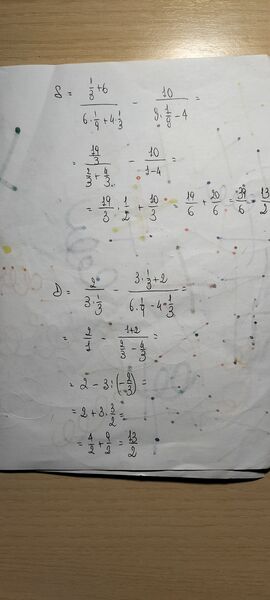 S = (1/3 + 6)/(6 · 1/9 + 4 · 1/3) - 10/(9 · 1/9 - 4) =
= (19/3)/(2/3 + 4/3) - 10/(1 - 4) =
= 19/3 · 1/2 + 10/3 = 19/6 + 20/6 = 39/6 = 13/2
D = 2/(3 · 1/3) - (3 · 1/3 + 2)/(6 · 1/9 - 4 · 1/3) =
= 2/1 - (1 + 2)/(2/3 - 4/3) =
= 2 - 3 : (-2/3) =
= 2 + 3 · 3/2 =
= 4/2 + 9/2 = 13/2